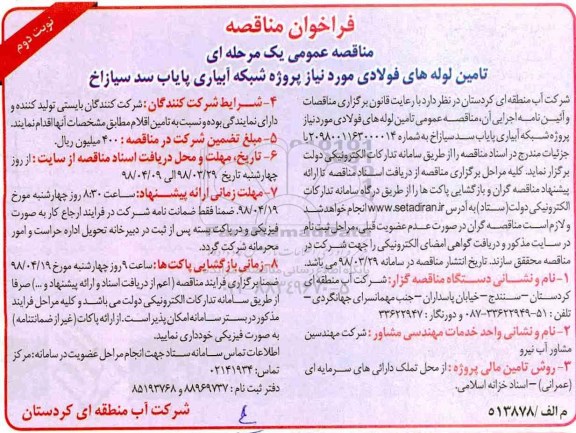 نوبت دوم
فراخوان مناقصه
مناقصه عمومی یک مرحله ای
تامین لوله های فولادی مورد نیاز پروژه شبکه آبیاری پایاب سد سیازاخ
شرکت آب منطقه ای کردستان در نظر دارد با رعایت قانون برگزاری مناقصات
و آئین نامه اجرایی آن، مناقصه عمومی تامین لوله های فولادی مورد نیاز
پروژه شبکه آبیاری پایاب سد سیازاخ به شماره ۲۰۹۸۰۰۱۱۶۳۰۰۰۰۱۴ را با
جزئیات مندرج در اسناد مناقصه را از طریق سامانه تدارکات الکترونیکی دولت
برگزار نماید. کلیه مراحل برگزاری مناقصه از دریافت اسناد مناقصه تا ارائه
پیشنهاد مناقصه گران و بازگشایی پاکت ها را از طریق درگاه سامانه تدارکات
الکترونیکی دولت (ستاد) به آدرس www.setadiran.ir انجام خواهد شد
و لازم است مناقصه گران در صورت عدم عضویت قبلی مراحل ثبت نام
در سایت مذکور و دریافت گواهی امضای الکترونیکی را جهت شرکت در
مناقصه محقق سازند. تاریخ انتشار مناقصه در سامانه ۹۸/۰۳/۲۹ می باشد.
۱- نام و نشانی دستگاه مناقصه گزار: شرکت آب منطقه ای
کردستان – سنندج – خیابان پاسداران – جنب مهمانسرای جهانگردی –
تلفن: ۵۱-۳۳۶۲۲۹۴۹-۰۸۷ و دورنگار: ۳۳۶۲۲۹۴۷
۲- نام و نشانی واحد خدمات مهندسی مشاور: شرکت مهندسین
مشاور آب نیرو
۳- روش تامین مالی پروژه: از محل تملک دارائی های سرمایه ای
(عمرانی) – اسناد خزانه اسلامی.
م الف / ۵۱۳۸۷۸
۴- شرایط شرکت کنندگان: شرکت کنندگان بایستی تولید کننده و
دارای نمایندگی بوده و نسبت به تامین اقلام مطابق مشخصات آنها اقدام نمایند.
۵- مبلغ تضمین شرکت در مناقصه: ۴۰۰ میلیون ریال.
۶- تاریخ، مهلت و محل دریافت اسناد مناقصه از سایت: از روز
چهارشنبه تاریخ ۹۸/۰۳/۲۹ الی ۹۸/۰۴/۰۹
۷- مهلت زمانی ارائه پیشنهاد: ساعت ۸:۳۰ روز چهارشنبه مورخ
۹۸/۰۴/۱۹. ضمنا فقط ضمانت نامه شرکت در فرایند ارجاع کار به صورت
فیزیکی و در پاکت بسته پس از ثبت در دبیرخانه تحویل اداره حراست و امور
محرمانه شرکت گردد.
۸- زمانی بازگشایی پاکت ها: ساعت ۹ روز چهارشنبه مورخ ۹۸/۰۴/۱۹
ضمنا برگزاری فرآیند مناقصه (اعم از دریافت اسناد و ارائه پیشنهاد و ...) صرفا
از طریق سامانه تدارکات الکترونیکی دولت می باشد و کلیه مراحل فرایند
مذکور در بستر سامانه امکان پذیر است. از ارائه پاکات (غیر از ضمانتنامه)
به صورت فیزیکی خودداری نمایید.
اطلاعات تماس سامانه ستاد جهت انجام مراحل عضویت در سامانه: مرکز
تماس: ۰۲۱۴۱۹۳۴
دفتر ثبت نام: ۸۸۹۶۹۷۳۷ و ۸۵۱۹۳۷۶۸
شرکت آب منطقه ای کردستان